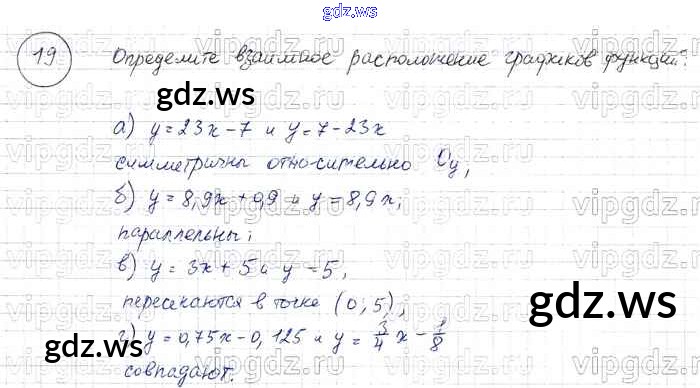 gdz.ws
19
Определите взаимное расположение графиков функций:
gdz.ws
а) y = 23x - 7 и y = 7 - 23x
симметричны относительно Oy,
б) y = 8,9x + 0,9 и y = 8,9x;
параллельны;
в) y = 3x + 5 и y = 5,
пересекаются в точке (0; 5),
gdz.ws
г) y = 0,75x - 0,125 и y = 3/4 x - 1/8
gdz.ws
совпадают.
vipgdz.ws